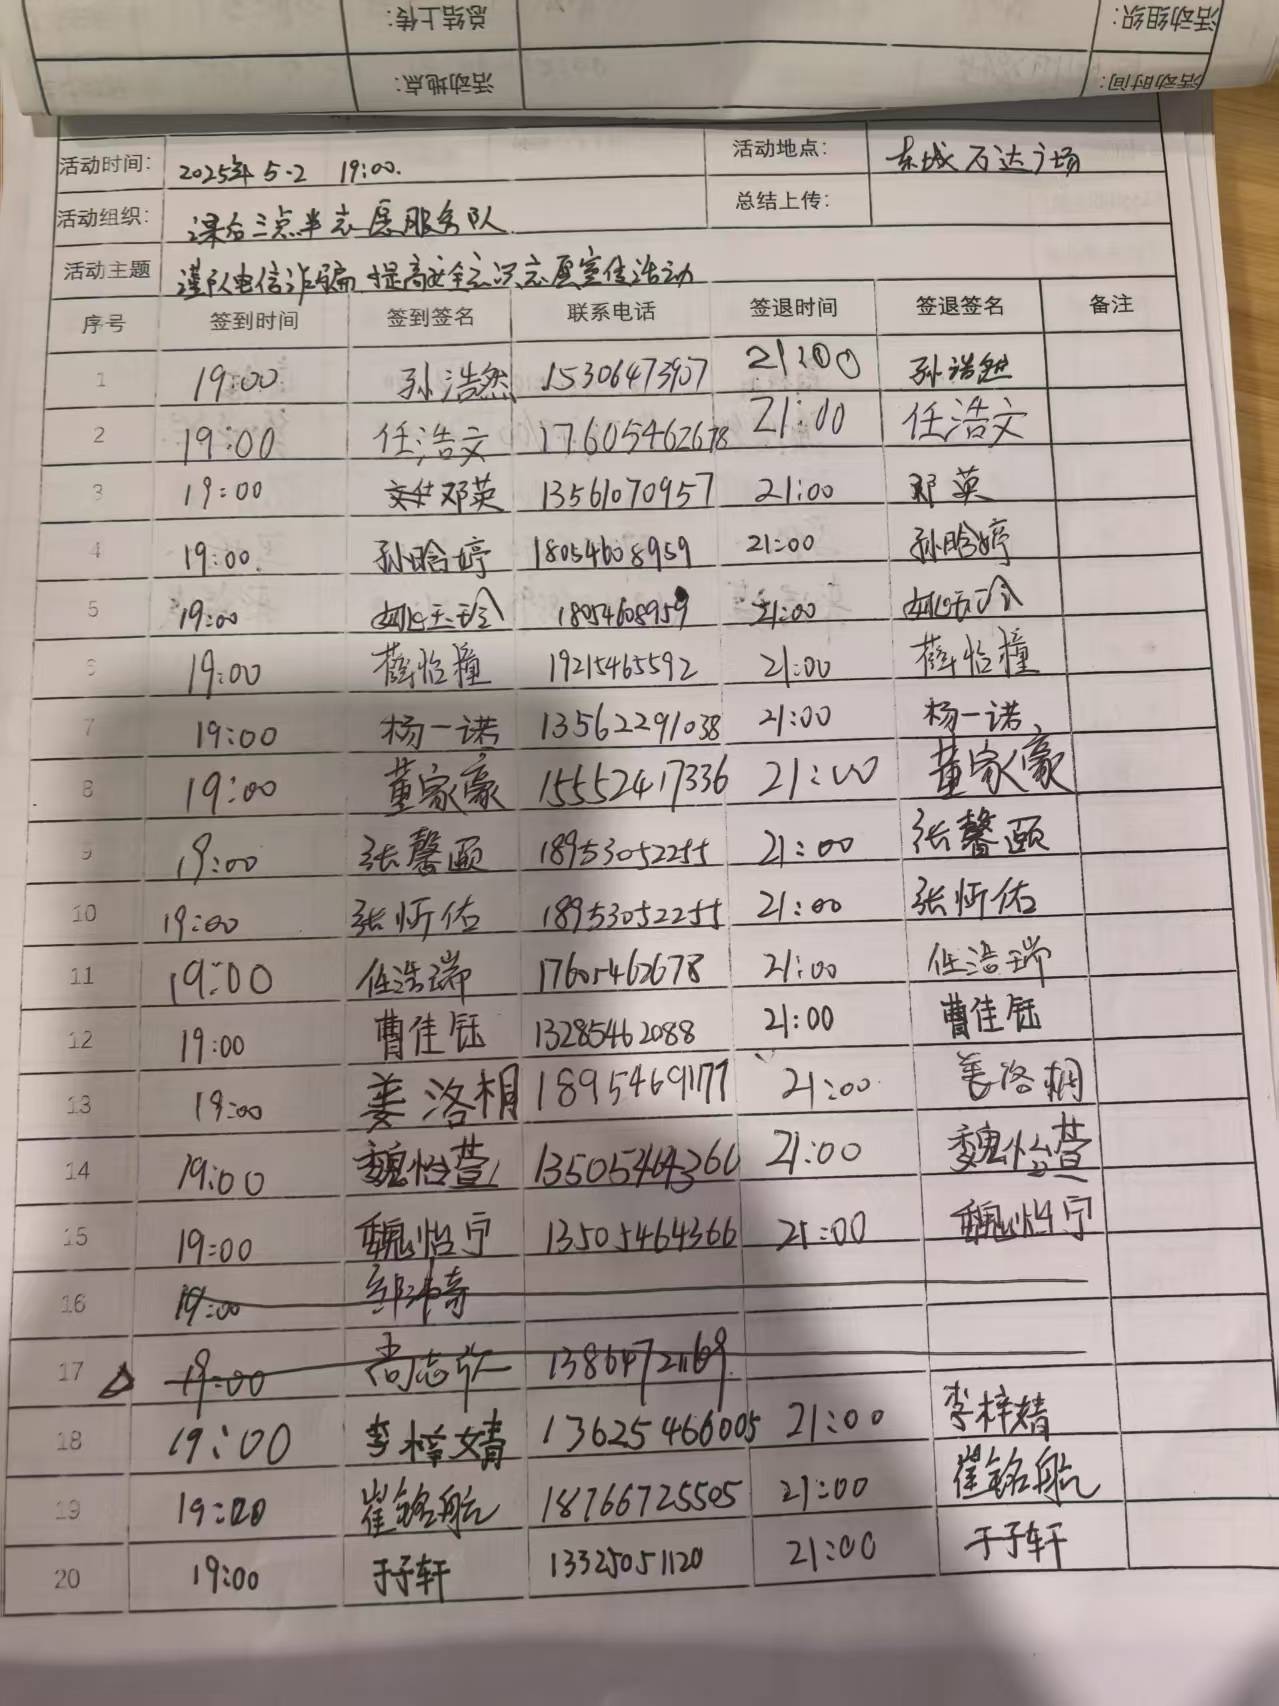 总结上传： 活动组织：
活动地点： 活动时间：
活动时间： 2025年5.2 19:00. 活动地点： 东城万达广场
活动组织： 课后三点半志愿服务队 总结上传：
活动主题 谨防电信诈骗 提高安全意识志愿宣传活动
序号 签到时间 签到签名 联系电话 签退时间 签退签名 备注
1 19:00 孙浩然 15306473907 21:00 孙浩然
2 19:00 任浩文 17605462678 21:00 任浩文
3 19:00 邓英 13561070957 21:00 邓英
4 19:00. 孙晗婷 18054608959 21:00 孙晗婷
5 19:00 姚天玲 18054608959 21:00 姚天玲
6 19:00 薛怡橦 19215465592 21:00 薛怡橦
7 19:00 杨一诺 13562291038 21:00 杨一诺
8 19:00 董家豪 15552417336 21:00 董家豪
9 19:00 张馨颐 18953052255 21:00 张馨颐
10 19:00 张忻佑 18953052255 21:00 张忻佑
11 19:00 任浩瑞 17605462678 21:00 任浩瑞
12 19:00 曹佳钰 13285462088 21:00 曹佳钰
13 19:00 姜洛桐 18954691177 21:00 姜洛桐
14 19:00 魏怡萱 13505464366 21:00 魏怡萱
15 19:00 魏怡宁 13505464366 21:00 魏怡宁
16 19:00
17 19:00 尚志弘 13864721169.
18 19:00 李梓婧 13625466005 21:00 李梓婧
19 19:00 崔铭航 18766725505 21:00 崔铭航
20 19:00 于子轩 13325051120 21:00 于子轩